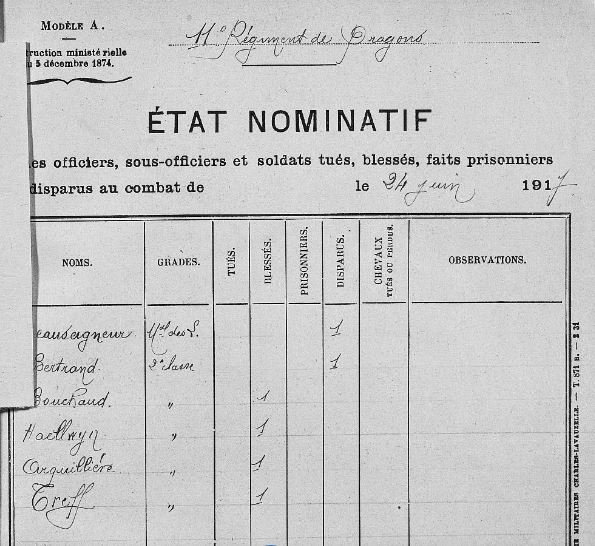 MODÈLE A.
11e Régiment de Dragons
ruction ministérielle
u 5 décembre 1874.
ÉTAT NOMINATIF
es officiers, sous-officiers et soldats tués, blessés, faits prisonniers
disparus au combat de le 24 juin 1917
NOMS. GRADES. TUÉS. BLESSÉS. PRISONNIERS. DISPARUS. CHEVAUX TUÉS OU PERDUS. OBSERVATIONS.
eauseigneur Mal des L. 1
Bertrand 2e classe 1
Bouchaud. " 1
" 1
Arquillière " 1
Treff " 1
E MILITAIRES CHARLES-LAVAUZELLE. — T. 871 B. — E 31